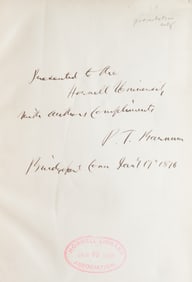 presentation
copy
Presented to the
Hornell University,
with authors Compliments
P. T. Barnum
Bridgeport Conn Jan'y 17 1876
HORNELL LIBRARY
ASSOCIATION